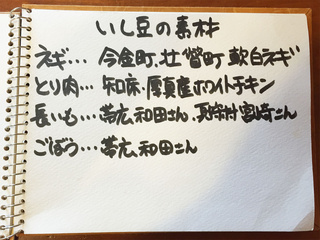 いし豆の素材
ネギ… 今金町、壮瞥町 軟白ネギ
とり肉… 知床・厚真産ホワイトチキン
長いも… 帯広、和田さん、真狩村 宮崎さん
ごぼう… 帯広、和田さん